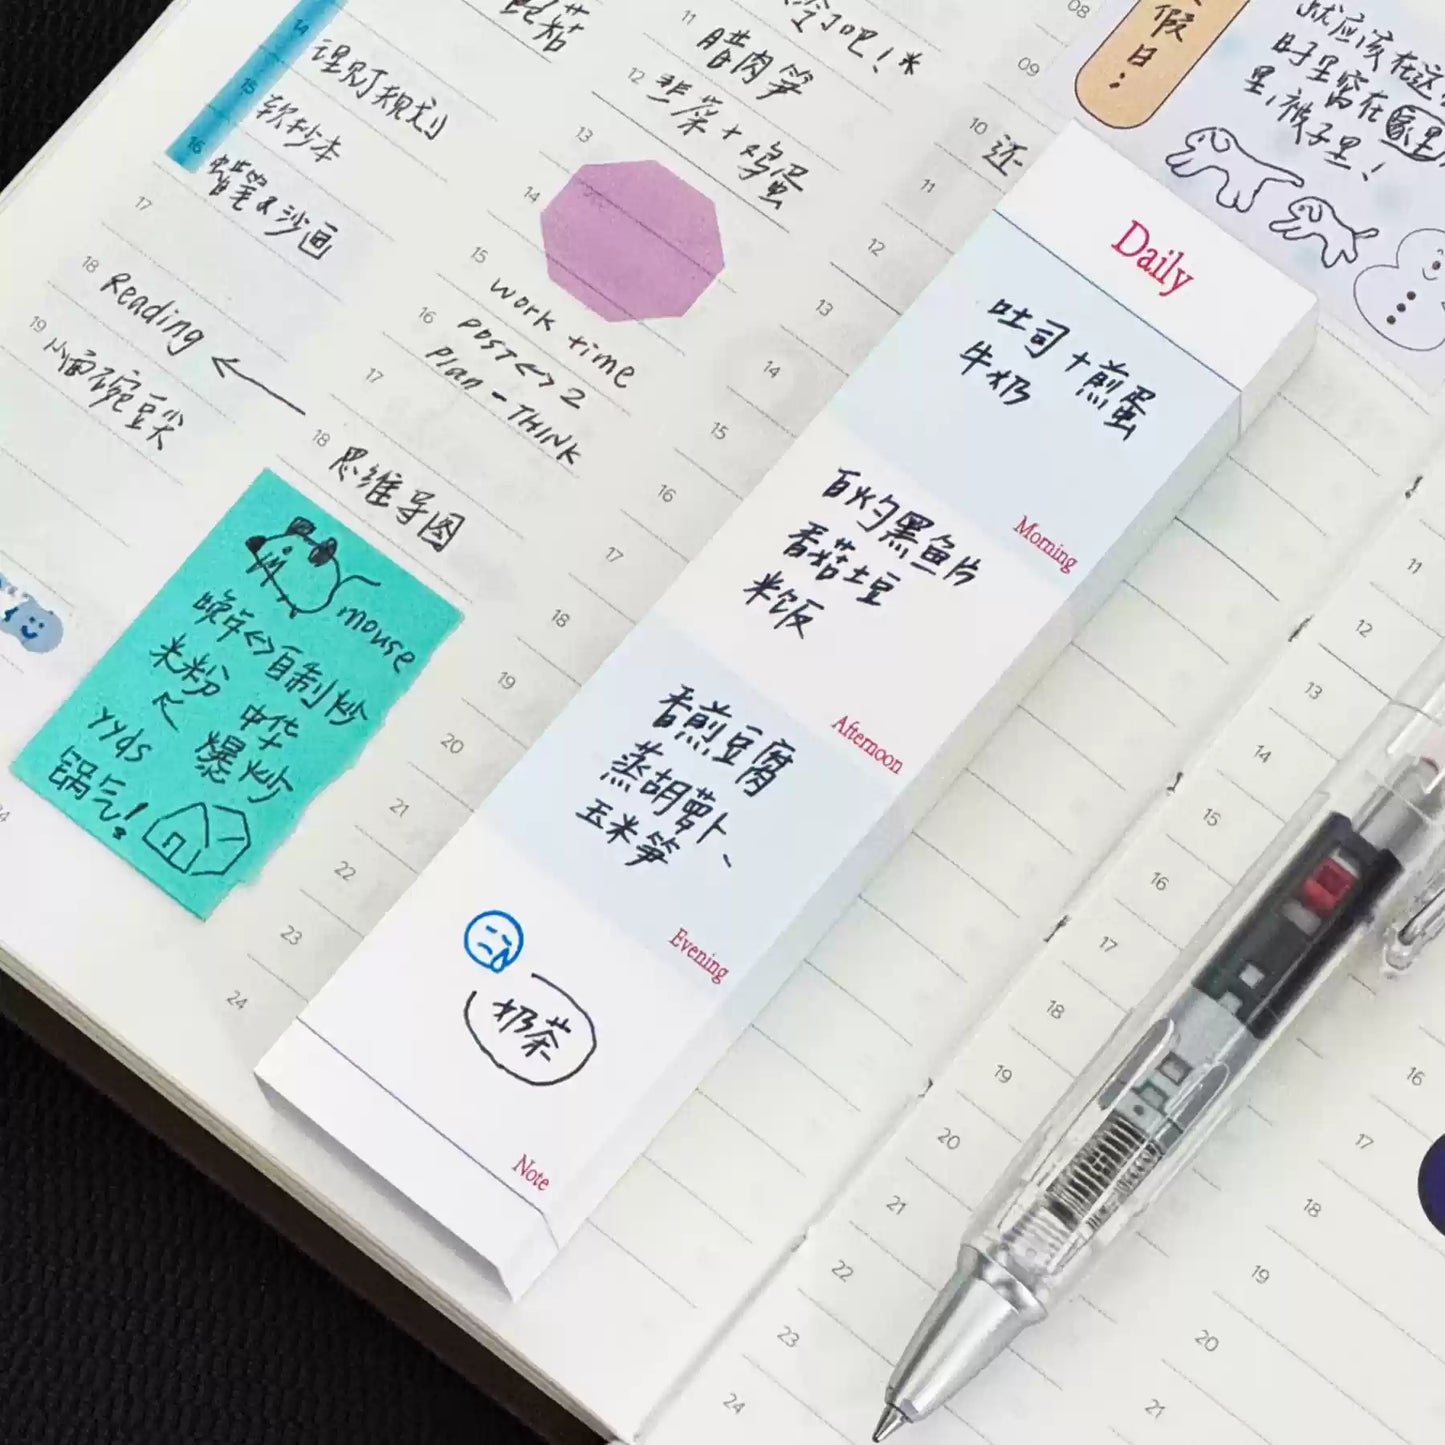 14
理财规划
15
软抄本
16
蜡笔&沙画
17
18
Reading
19
小面碗豆尖
11
冷了吧!*
腊肉笋
12
韭菜+鸡蛋
13
14
15
work time
16
POST<->2
Plan-THINK
17
18
思维导图
mouse
晚午<->自制炒
米粉
中华
yyds
爆炒
锅气!
18
19
20
21
22
23
24
08
09
10
还
11
12
13
14
15
16
17
假日:
就应该在这
时里窝在家里
里,被子里!
Daily
吐司+煎蛋
牛奶
Morning
百灼黑鱼片
香菇土豆
米饭
Afternoon
香煎豆腐
蒸胡萝卜、
玉米笋
Evening
奶茶
Note
11
12
13
14
15
16
17
18
19
20
21
22
23
24
16
17
18
19
20
21